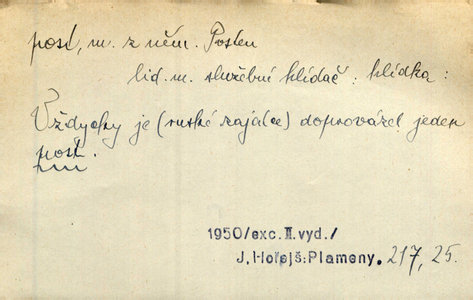 post, m. z něm. Posten
lid. m. služební hlídač: hlídka:
Vždycky je (ruské zajatce) doprovázel jeden
post.
1950/exc. II. vyd./
J. Hořejš: Plameny. 217, 25.